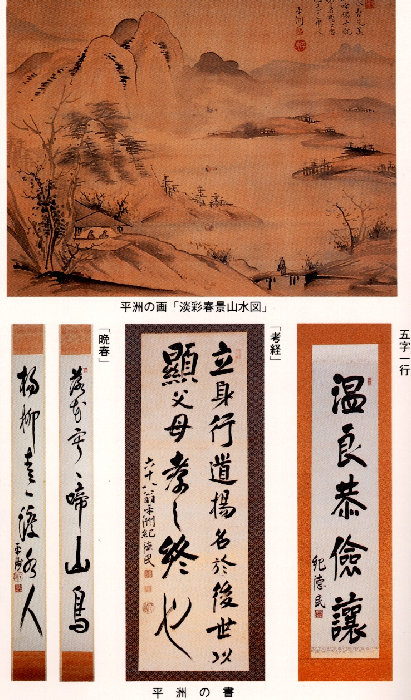 平洲の画「淡彩春景山水図」
五字一行
温良恭儉讓
紀德民
「考経」
立身行道揚名於後世以
顯父母孝之終也
六十八翁平洲紀德民
「晩春」
落花寂々啼山鳥
楊柳青々渡水人
平洲の書